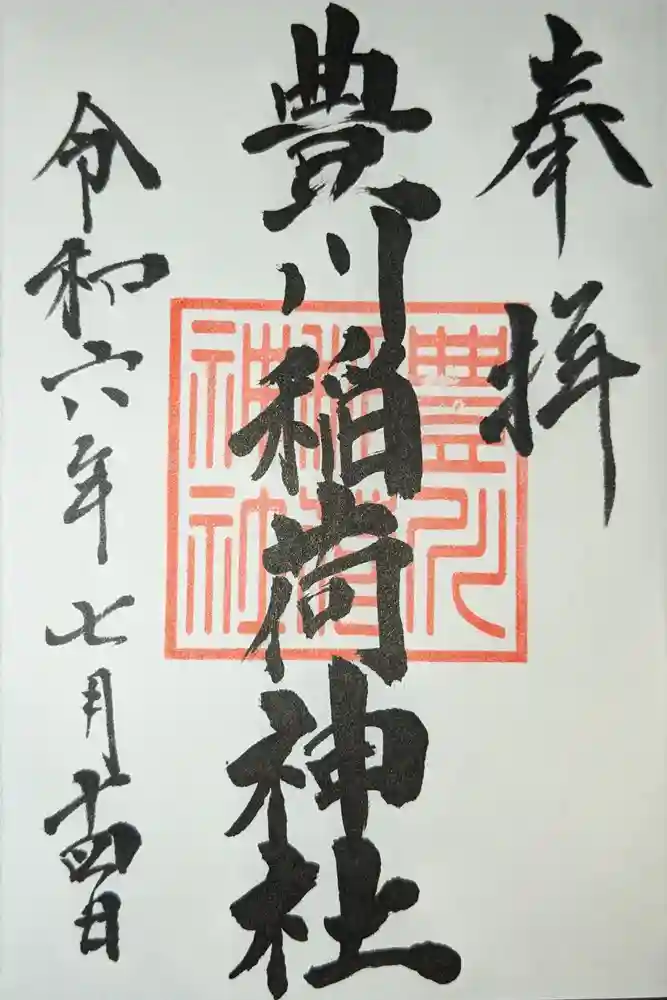 奉拝
豊川稲荷神社
豊川稲荷神社
令和六年七月十四日